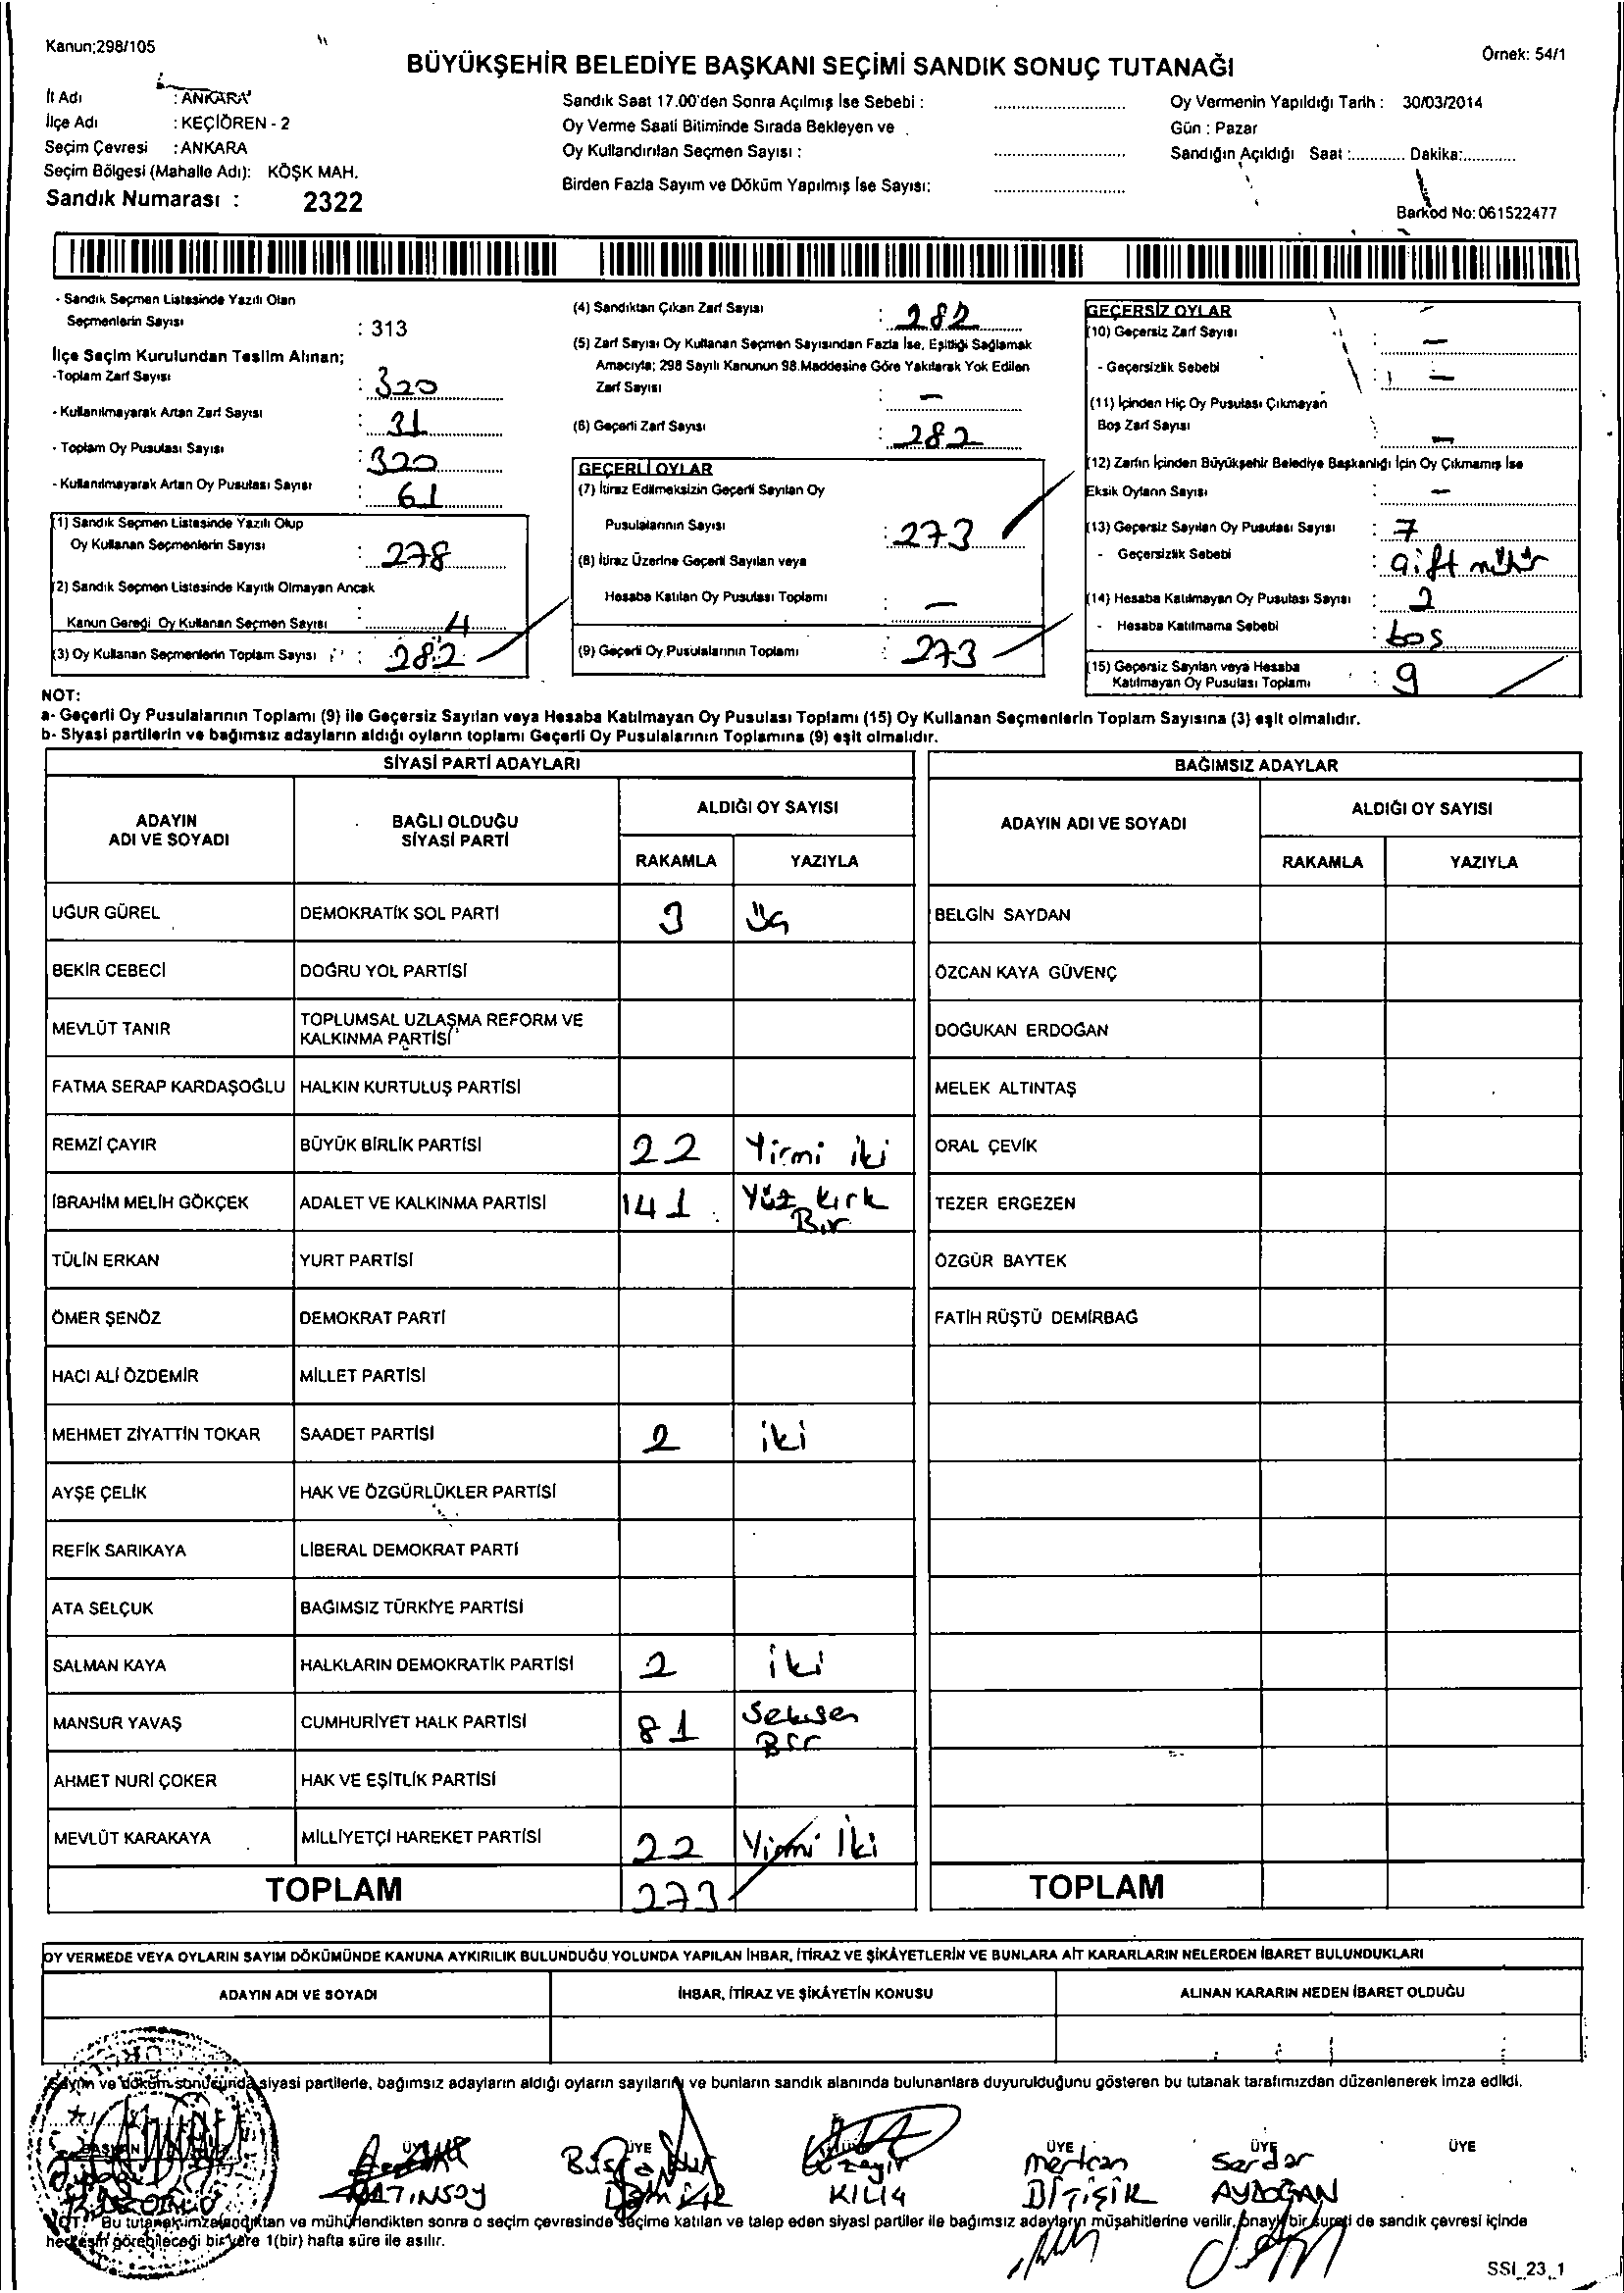 Kanun;298/105
Örnek: 54/1
BÜYÜKŞEHİR BELEDİYE BAŞKANI SEÇİMİ SANDIK SONUÇ TUTANAĞI
İl Adı : ANKARA
İlçe Adı : KEÇİÖREN - 2
Seçim Çevresi : ANKARA
Seçim Bölgesi (Mahalle Adı): KÖŞK MAH.
Sandık Numarası : 2322
Sandık Saat 17.00'den Sonra Açılmış İse Sebebi :
Oy Verme Saati Bitiminde Sırada Bekleyen ve
Oy Kullandırılan Seçmen Sayısı :
Birden Fazla Sayım ve Döküm Yapılmış İse Sayısı:
Oy Vermenin Yapıldığı Tarih : 30/03/2014
Gün : Pazar
Sandığın Açıldığı Saat :............ Dakika:............
Barkod No: 061522477
- Sandık Seçmen Listesinde Yazılı Olan
Seçmenlerin Sayısı : 313
İlçe Seçim Kurulundan Teslim Alınan;
-Toplam Zarf Sayısı : 320
- Kullanılmayarak Artan Zarf Sayısı : 31
- Toplam Oy Pusulası Sayısı : 320
- Kullanılmayarak Artan Oy Pusulası Sayısı : 61
(1) Sandık Seçmen Listesinde Yazılı Olup
Oy Kullanan Seçmenlerin Sayısı : 278
(2) Sandık Seçmen Listesinde Kayıtlı Olmayan Ancak
Kanun Gereği Oy Kullanan Seçmen Sayısı : 4
(3) Oy Kullanan Seçmenlerin Toplam Sayısı : 282
(4) Sandıktan Çıkan Zarf Sayısı : 282
(5) Zarf Sayısı Oy Kullanan Seçmen Sayısından Fazla İse, Eşitliği Sağlamak
Amacıyla; 298 Sayılı Kanunun 98.Maddesine Göre Yakılarak Yok Edilen
Zarf Sayısı : -
(6) Geçerli Zarf Sayısı : 282
GEÇERLİ OYLAR
(7) İtiraz Edilmeksizin Geçerli Sayılan Oy
Pusulalarının Sayısı : 273
(8) İtiraz Üzerine Geçerli Sayılan veya
Hesaba Katılan Oy Pusulası Toplamı : -
(9) Geçerli Oy Pusulalarının Toplamı : 273
GEÇERSİZ OYLAR
(10) Geçersiz Zarf Sayısı : -
- Geçersizlik Sebebi : -
(11) İçinden Hiç Oy Pusulası Çıkmayan
Boş Zarf Sayısı : -
(12) Zarfın İçinden Büyükşehir Belediye Başkanlığı İçin Oy Çıkmamış İse
Eksik Oyların Sayısı : -
(13) Geçersiz Sayılan Oy Pusulası Sayısı : 7
- Geçersizlik Sebebi : çift mühür
(14) Hesaba Katılmayan Oy Pusulası Sayısı : 2
- Hesaba Katılmama Sebebi : boş
(15) Geçersiz Sayılan veya Hesaba
Katılmayan Oy Pusulası Toplamı : 9
NOT:
a- Geçerli Oy Pusulalarının Toplamı (9) ile Geçersiz Sayılan veya Hesaba Katılmayan Oy Pusulası Toplamı (15) Oy Kullanan Seçmenlerin Toplam Sayısına (3) eşit olmalıdır.
b- Siyasi partilerin ve bağımsız adayların aldığı oyların toplamı Geçerli Oy Pusulalarının Toplamına (9) eşit olmalıdır.
SİYASİ PARTİ ADAYLARI
ADAYIN ADI VE SOYADI
BAĞLI OLDUĞU SİYASİ PARTİ
ALDIĞI OY SAYISI
RAKAMLA YAZIYLA
UĞUR GÜREL DEMOKRATİK SOL PARTİ 3 Üç
BEKİR CEBECİ DOĞRU YOL PARTİSİ
MEVLÜT TANIR TOPLUMSAL UZLAŞMA REFORM VE
KALKINMA PARTİSİ
FATMA SERAP KARDAŞOĞLU HALKIN KURTULUŞ PARTİSİ
REMZİ ÇAYIR BÜYÜK BİRLİK PARTİSİ 22 Yirmi iki
İBRAHİM MELİH GÖKÇEK ADALET VE KALKINMA PARTİSİ 141 Yüz kırk
Bir
TÜLİN ERKAN YURT PARTİSİ
ÖMER ŞENÖZ DEMOKRAT PARTİ
HACI ALİ ÖZDEMİR MİLLET PARTİSİ
MEHMET ZİYATTİN TOKAR SAADET PARTİSİ 2 iki
AYŞE ÇELİK HAK VE ÖZGÜRLÜKLER PARTİSİ
REFİK SARIKAYA LİBERAL DEMOKRAT PARTİ
ATA SELÇUK BAĞIMSIZ TÜRKİYE PARTİSİ
SALMAN KAYA HALKLARIN DEMOKRATİK PARTİSİ 2 iki
MANSUR YAVAŞ CUMHURİYET HALK PARTİSİ 81 Seksen
Bir
AHMET NURİ ÇOKER HAK VE EŞİTLİK PARTİSİ
MEVLÜT KARAKAYA MİLLİYETÇİ HAREKET PARTİSİ 22 Yirmi İki
TOPLAM 273
BAĞIMSIZ ADAYLAR
ADAYIN ADI VE SOYADI
ALDIĞI OY SAYISI
RAKAMLA YAZIYLA
BELGİN SAYDAN
ÖZCAN KAYA GÜVENÇ
DOĞUKAN ERDOĞAN
MELEK ALTINTAŞ
ORAL ÇEVİK
TEZER ERGEZEN
ÖZGÜR BAYTEK
FATİH RÜŞTÜ DEMİRBAĞ
TOPLAM
OY VERMEDE VEYA OYLARIN SAYIM DÖKÜMÜNDE KANUNA AYKIRILIK BULUNDUĞU YOLUNDA YAPILAN İHBAR, İTİRAZ VE ŞİKÂYETLERİN VE BUNLARA AİT KARARLARIN NELERDEN İBARET BULUNDUKLARI
ADAYIN ADI VE SOYADI İHBAR, İTİRAZ VE ŞİKÂYETİN KONUSU ALINAN KARARIN NEDEN İBARET OLDUĞU
Sayım ve döküm sonucunda siyasi partilerle, bağımsız adayların aldığı oyların sayılarını ve bunların sandık alanında bulunanlara duyurulduğunu gösteren bu tutanak tarafımızdan düzenlenerek imza edildi.
BAŞKAN ÜYE ÜYE ÜYE ÜYE ÜYE ÜYE
Büşra Nur Üzeyir Mertcan Serdar
DEMİR KILIÇ BİTİŞİK AYDOĞAN
NOT: Bu tutanak imzalandıktan ve mühürlendikten sonra o seçim çevresinde seçime katılan ve talep eden siyasi partiler ile bağımsız adayların müşahitlerine verilir, onaylı bir sureti de sandık çevresi içinde
herkesin görebileceği bir yere 1(bir) hafta süre ile asılır.
SSI_23_1